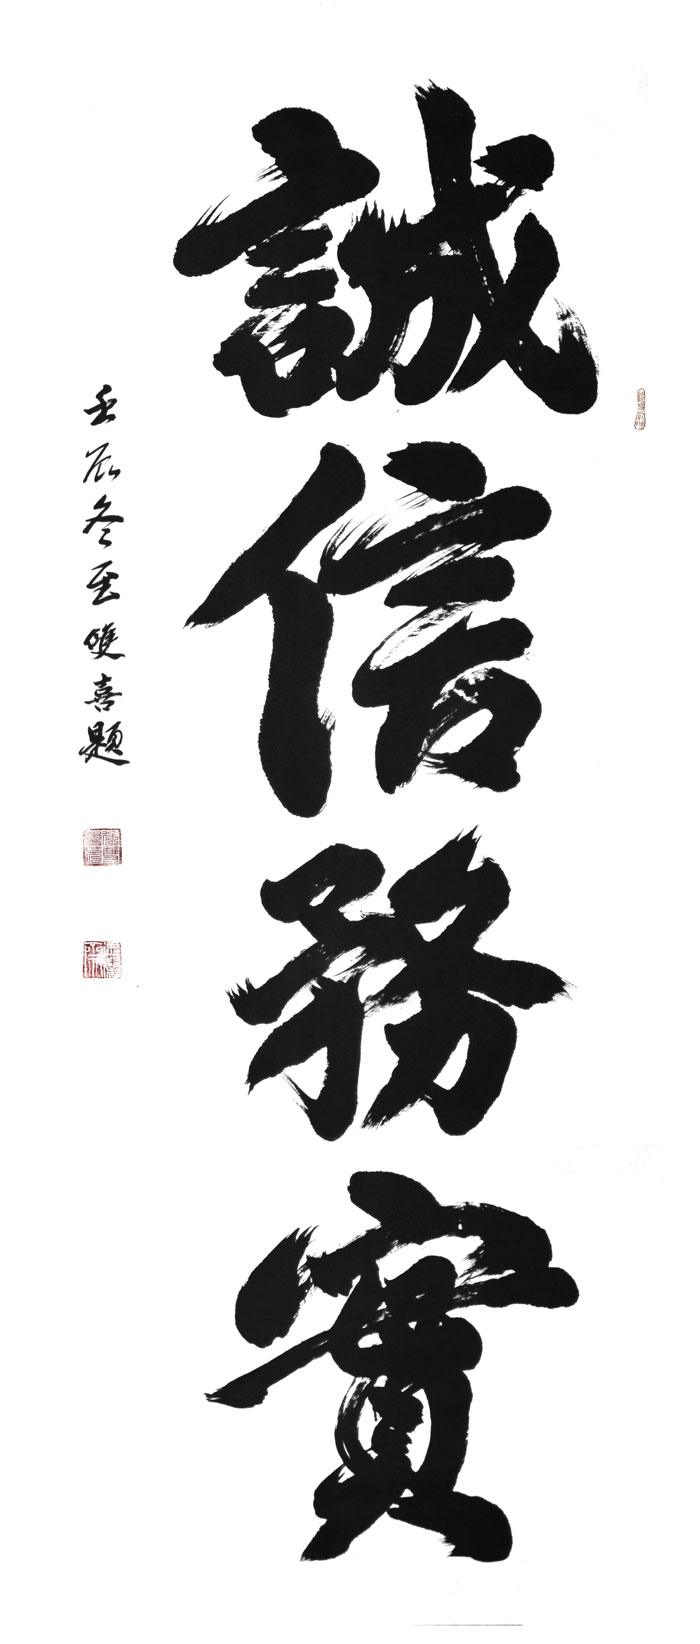 誠信務實
壬辰冬至雙喜題